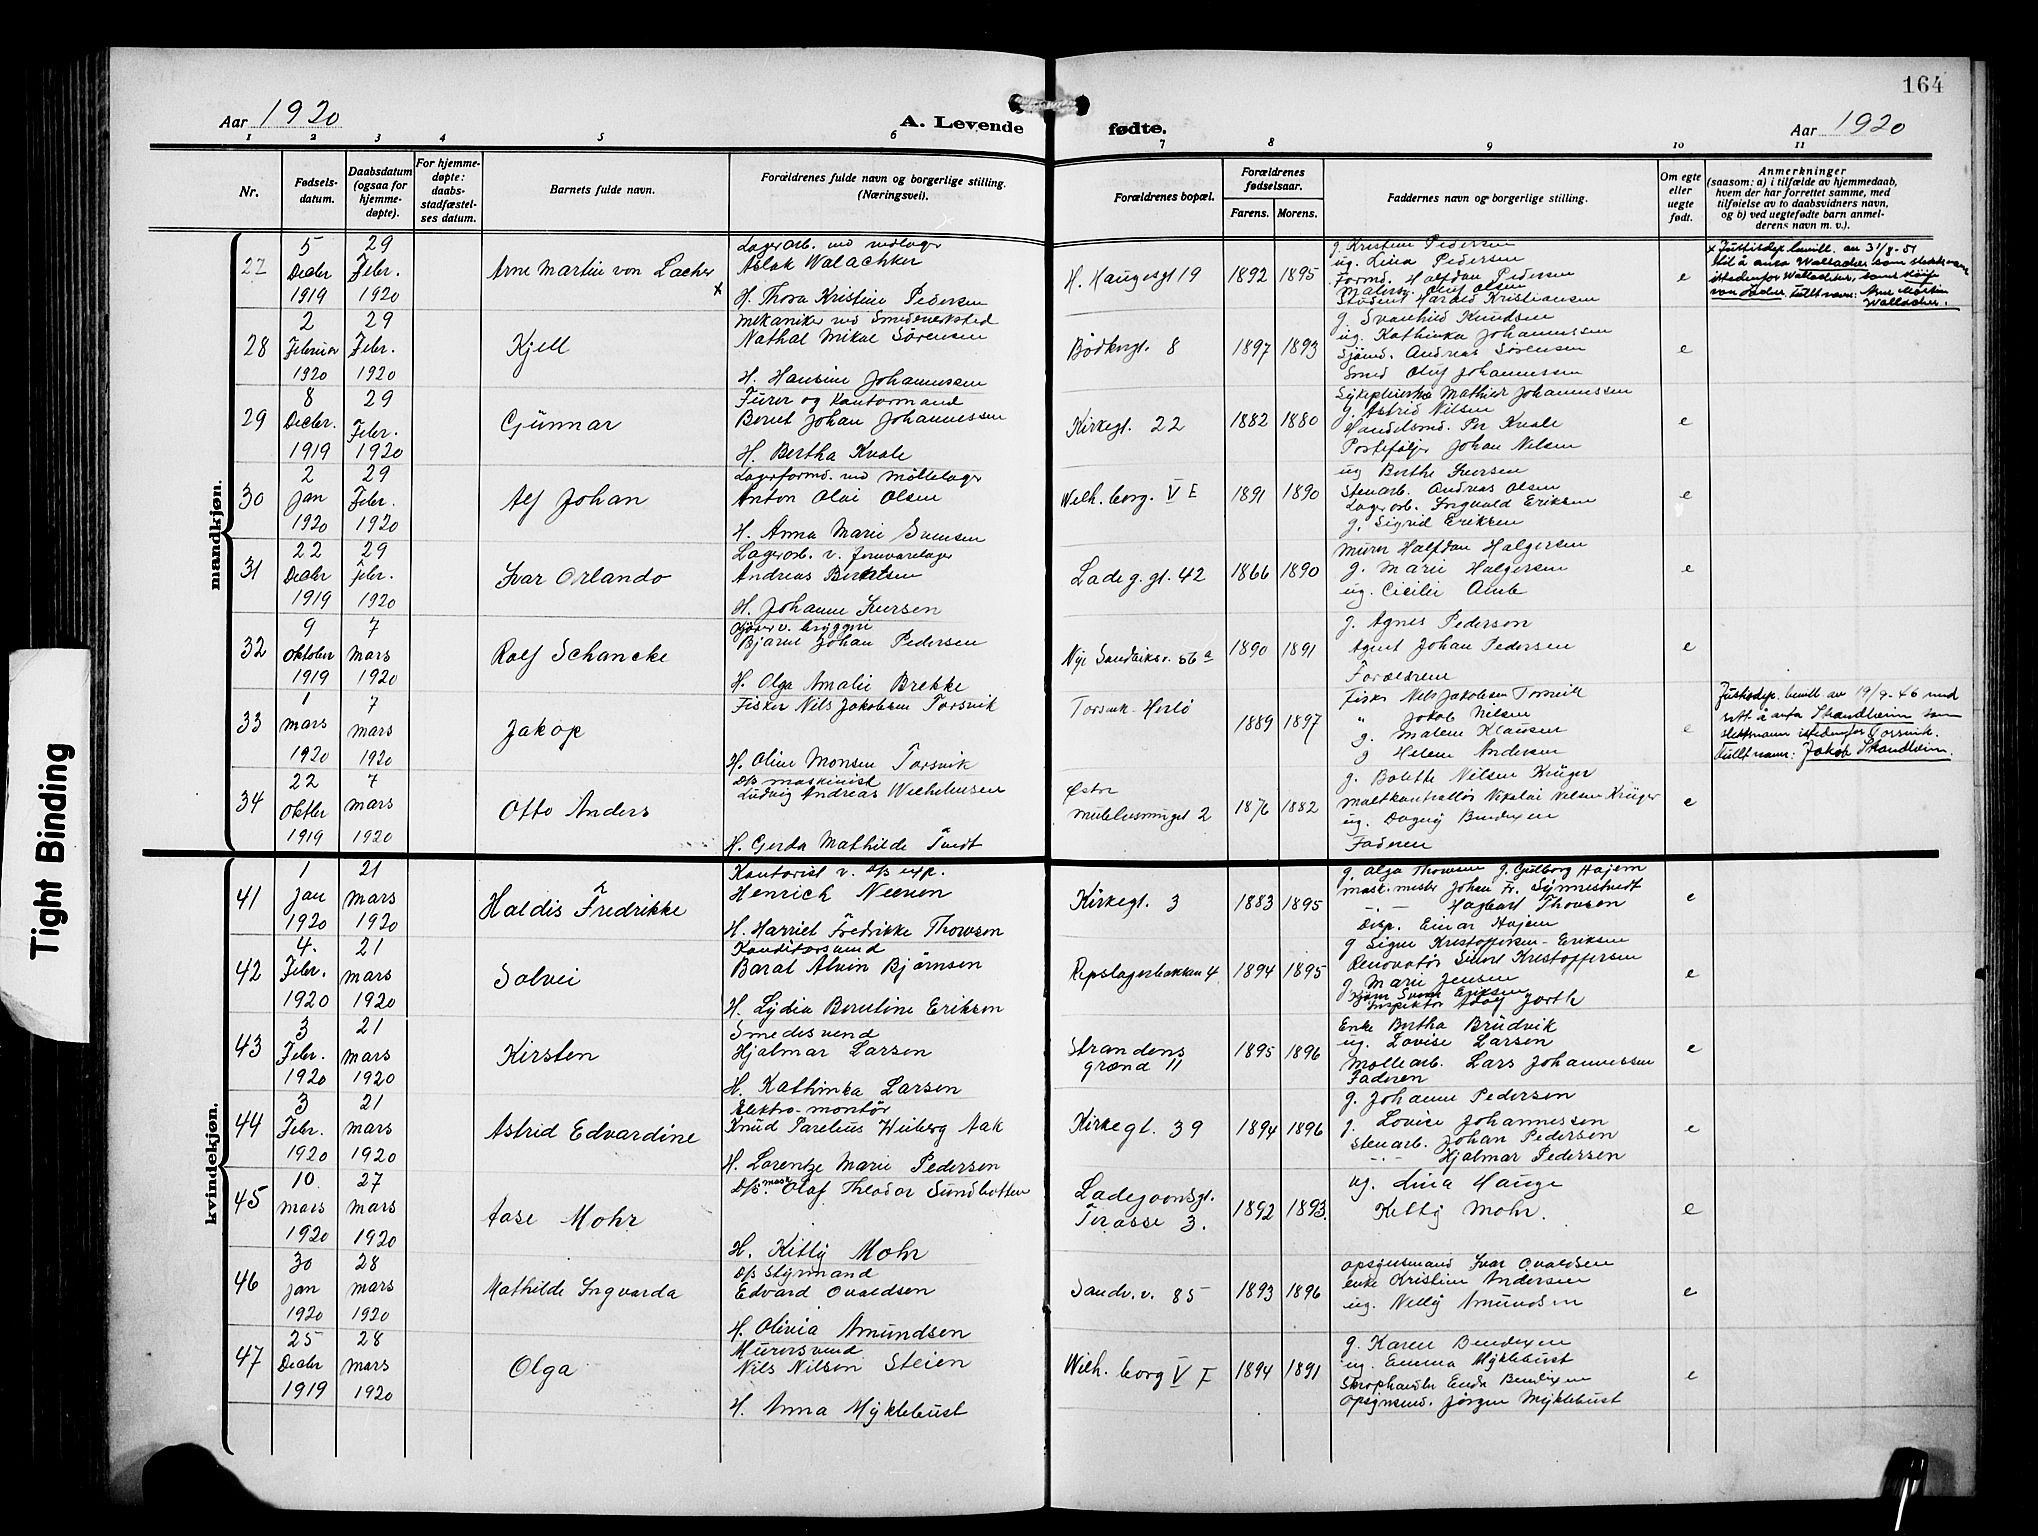 164
Aar 1920
A. Levende fødte.
Aar 1920
1 2 3 4 5 6 7 8 9 10 11
Nr.
Fødsels-
datum.
Daabsdatum
(ogsaa for
hjemme-
døpte).
For hjemme-
døpte:
daabs-
stadfæstel-
ses datum.
Barnets fulde navn.
Forældrenes fulde navn og borgerlige stilling.
(Næringsvei).
Forældrenes bopæl.
Forældrenes
fødselsaar.
Farens. Morens.
Faddernes navn og borgerlige stilling.
Om egte
eller
uegte
født.
Anmerkninger
(saasom: a) i tilfælde av hjemmedaab,
hvem der har forrettet samme, med
tilføielse av to daabsvidners navn,
og b) ved uegtefødte barn anmel-
derens navn m. v.).
mandkjøn.
27
5
Decbr
1919
29
Febr.
1920
Arne Martin von Lacher x
Lagerarb. ved vedlager
Aslak Walachker
H. Thora Kristine Pedersen
H. Haugesgt 19
1892 1895
g. Kristine Pedersen
ug. Lina Pedersen
Formd. Halfdan Pedersen
Malersv. Oluf Olsen
Student Harald Kristiansen
e
x Justisdep. bevill. av 31/8-51
til å anta Wallacher som slektsnavn
istedenfor Wallachker, samt sløife
von Lacher. Fullt navn: Arne Martin
Wallacher.
28
2
Februar
1920
29
Febr.
1920
Kjell
Mekaniker ved Smedverksted
Nathal Mikal Sørensen
H. Hansine Johannessen
Bødkergt. 8
1897 1893
g. Svanhild Knudsen
ug. Kathinka Johannessen
Sjømd. Andreas Sørensen
Smed Oluf Johannessen
e
29
8
Decbr.
1919
29
Febr.
1920
Gunnar
Furer og Kantormand
Bernt Johan Johannessen
H. Bertha Kvale
Kirkegt. 22
1882 1880
Sykepleierske Mathier Johannessen
g. Astrid Nilsen
Handelsmd. Per Kvale
Portefølje Johan Nilsen
e
30
2
Jan
1920
29
Febr.
1920
Alf Johan
Lagerformd. ved møllelager
Anton Olai Olsen
H. Anna Marie Svensen
Wilh. borg. V E
1891 1890
ug Berthe Iversen
Stenarb. Andreas Olsen
Lagerarb. Ingvald Eriksen
g. Sigrid Eriksen
e
31
22
Decbr
1919
29
Febr.
1920
Ivar Orlando
Lagerarb. v. jernvarelager
Andreas Berntsen
H. Johanne Iversen
Ladeg.gt. 42
1866 1890
Murer Halfdan Halgersen
g. Marie Halgersen
ug. Cicilie
e
32
9
Oktober
1919
7
Mars
1920
Rolf Schancke
Kjører v. bryggeri
Bjarne Johan Pedersen
H. Olga Amalie Brekke
Nye Sandviksv. 56 a
1890 1891
g. Agnes Pederson
Agent Johan Pedersen
Forældrene
e
33
1
Mars
1920
7
Mars
1920
Jakop
Fisker Nils Jakobsen Torsvik
H. Oline Monsen Torsvik
Torsvik Herlø
1889 1897
Fisker Nils Jakobsen Torsvik
" Jakob Nilsen
g. Malene Klausen
g Helene Andersen
e
Justisdep. bevill. av 19/9-46 med
rett å anta Strandheim som
slektsnavn istedenfor Torsvik.
Fullt navn: Jakob Strandheim.
34
22
Oktbr
1919
7
Mars
1920
Otto Anders
D/S maskinist
Ludvig Andreas Wilhelmsen
H. Gerda Mathilde Tvedt
Østre
Muhlensmuget 2
1876 1882
g. Bolette Nilsen Krüger
Maltkontrollør Nikolai Nilsen Krüger
ug. Dagny Bendixen
Faderen
e
kvindekjøn.
41
1
Jan
1920
21
Mars
1920
Haldis Fredrikke
Kantorist v. D/S exp.
Henrich Neeven
H. Harriet Fredrikke Thowsen
Kirkegt. 3
1883 1895
g. Olga Thowsen g. Gulborg Hajem
mask. mester Johan Fr. Synnestvedt
- " - Hagbart Thowsen
Disp. Einar Hajem
e
42
4.
Febr.
1920
21
Mars
1920
Solvei
Konditorsvend
Baral Alvin Bjørnsen
H. Lydia Berntine Eriksen
Repslagerbakken 4
1894 1895
g Signe Kristoffersen-Eriksen
Renovatør Sund Kristoffersen
g Marie Jensen
Kjøm Svend Eriksen
Inspektør Adolf
e
43
3
Febr.
1920
21
Mars
1920
Kirsten
Smedesvend
Hjalmar Larsen
H. Kathinka Larsen
Strandens
grænd 11
1895 1896
Enke Bertha Brudvik
ug. Lovise Larsen
Møllearb. Lars Johannessen
Faderen
e
44
3
Febr.
1920
21
Mars
1920
Astrid Edvardine
Elektro-montør
Knud Parelius Wiberg Aak
H. Lorentze Marie Pedersen
Kirkegt. 39
1894 1896
g. Johanne Pedersen
g. Lovise Johannessen
Stenarb. Johan Pedersen
- " - Hjalmar Pedersen
e
45
10
Mars
1920
27
Mars
1920
Aase Mohr
D/S mask Olaf Theodor Sundbotten
H. Kitty Mohr
Ladegaardsgt.
Terasse 3.
1892 1893.
ug. Lina Hauge
Kitty Mohr.
e
46
30
Jan
1920
28
Mars
1920
Mathilde Ingvarda
D/S Styrmand
Edvard Ovaldsen
H. Olivia Amundsen
Sandv. v. 85
1893 1896
Opsynsmand Ivar Ovaldsen
Enke Kristine Andersen
ug. Nelly Amundsen
e
47
25
Decbr
1919
28
Mars
1920
Olga
Murersvend
Nils Nilsen Steien
H. Anna Myklebust
Wilh. borg V F
1894 1891
g. Karen Bendixen
ug. Emma Myklebust
Skrophandler Enda Bendixen
Opsynsmd. Jørgen Myklebust
e
Tight Binding